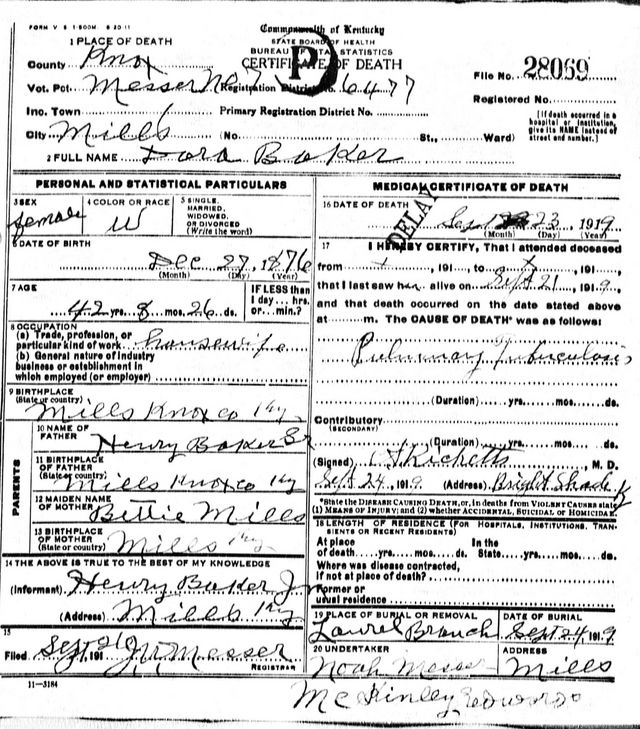 FORM V S 1-500M. 8-20-11
Commonwealth of Kentucky
STATE BOARD OF HEALTH
BUREAU OF VITAL STATISTICS
CERTIFICATE OF DEATH
1 PLACE OF DEATH
County Knox
Vot. Pct. Messer No 7 (Registration District No. 6477
File No. 28069
Registered No.
Inc. Town Primary Registration District No.
City Mills (No. St., Ward)
[If death occurred in a hospital or institution, give its NAME instead of street and number.]
2 FULL NAME Dora Baker
PERSONAL AND STATISTICAL PARTICULARS
3 SEX female
4 COLOR OR RACE W
5 SINGLE, MARRIED, WIDOWED, OR DIVORCED (Write the word)
6 DATE OF BIRTH
Dec 27, 1876
(Month) (Day) (Year)
7 AGE
42 yrs. 8 mos. 26 ds.
IF LESS than 1 day... hrs. or... min.?
8 OCCUPATION
(a) Trade, profession, or particular kind of work housewife
(b) General nature of industry business or establishment in which employed (or employer)
9 BIRTHPLACE (State or country)
Mills Knox co Ky
PARENTS
10 NAME OF FATHER Henry Baker Sr
11 BIRTHPLACE OF FATHER (State or country) Mills Knox co Ky
12 MAIDEN NAME OF MOTHER Bettie Mills
13 BIRTHPLACE OF MOTHER (State or country) Mills Ky
14 THE ABOVE IS TRUE TO THE BEST OF MY KNOWLEDGE
(Informant) Henry Baker Jr
(Address) Mills Ky
15
Filed Sept 26, 191 Messer
REGISTRAR
11-3184
MEDICAL CERTIFICATE OF DEATH
DELAY
16 DATE OF DEATH
Sept 23, 1919
(Month) (Day) (Year)
17 I HEREBY CERTIFY, That I attended deceased
from , 191 , to , 191 ,
that I last saw her alive on Sept 21, 1919,
and that death occurred on the date stated above
at m. The CAUSE OF DEATH* was as follows:
Pulmonary Tuberculosis
(Duration) yrs. mos. ds.
Contributory (SECONDARY)
(Duration) yrs. mos. ds.
(Signed) Ricketts, M. D.
Sept 24, 1919 (Address) Bright Shade Ky
*State the DISEASE CAUSING DEATH, or, in deaths from VIOLENT CAUSES state (1) MEANS OF INJURY; and (2) whether ACCIDENTAL, SUICIDAL or HOMICIDAL.
18 LENGTH OF RESIDENCE (FOR HOSPITALS, INSTITUTIONS, TRANSIENTS OR RECENT RESIDENTS)
At place of death yrs. mos. ds. In the State yrs. mos. ds.
Where was disease contracted, if not at place of death?
Former or usual residence
19 PLACE OF BURIAL OR REMOVAL DATE OF BURIAL
Laurel Branch Sept 24 1919
20 UNDERTAKER ADDRESS
Noah Messer Mills
McKinley Edwards